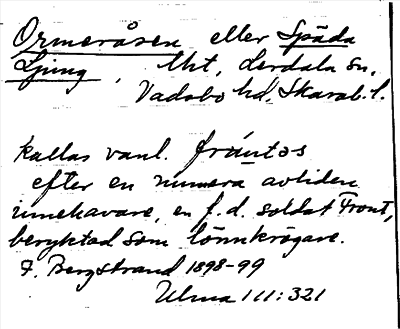 Ormeråsen eller Späda
Ljung, lht, Lerdala sn,
Vadsbo hd, Skarab. l.
kallas vanl. frántos
efter en numera avliden
innehavare, en f.d. soldat Front,
beryktad som lönnkrögare.
F. Bergstrand 1898-99
Ulma 111:321